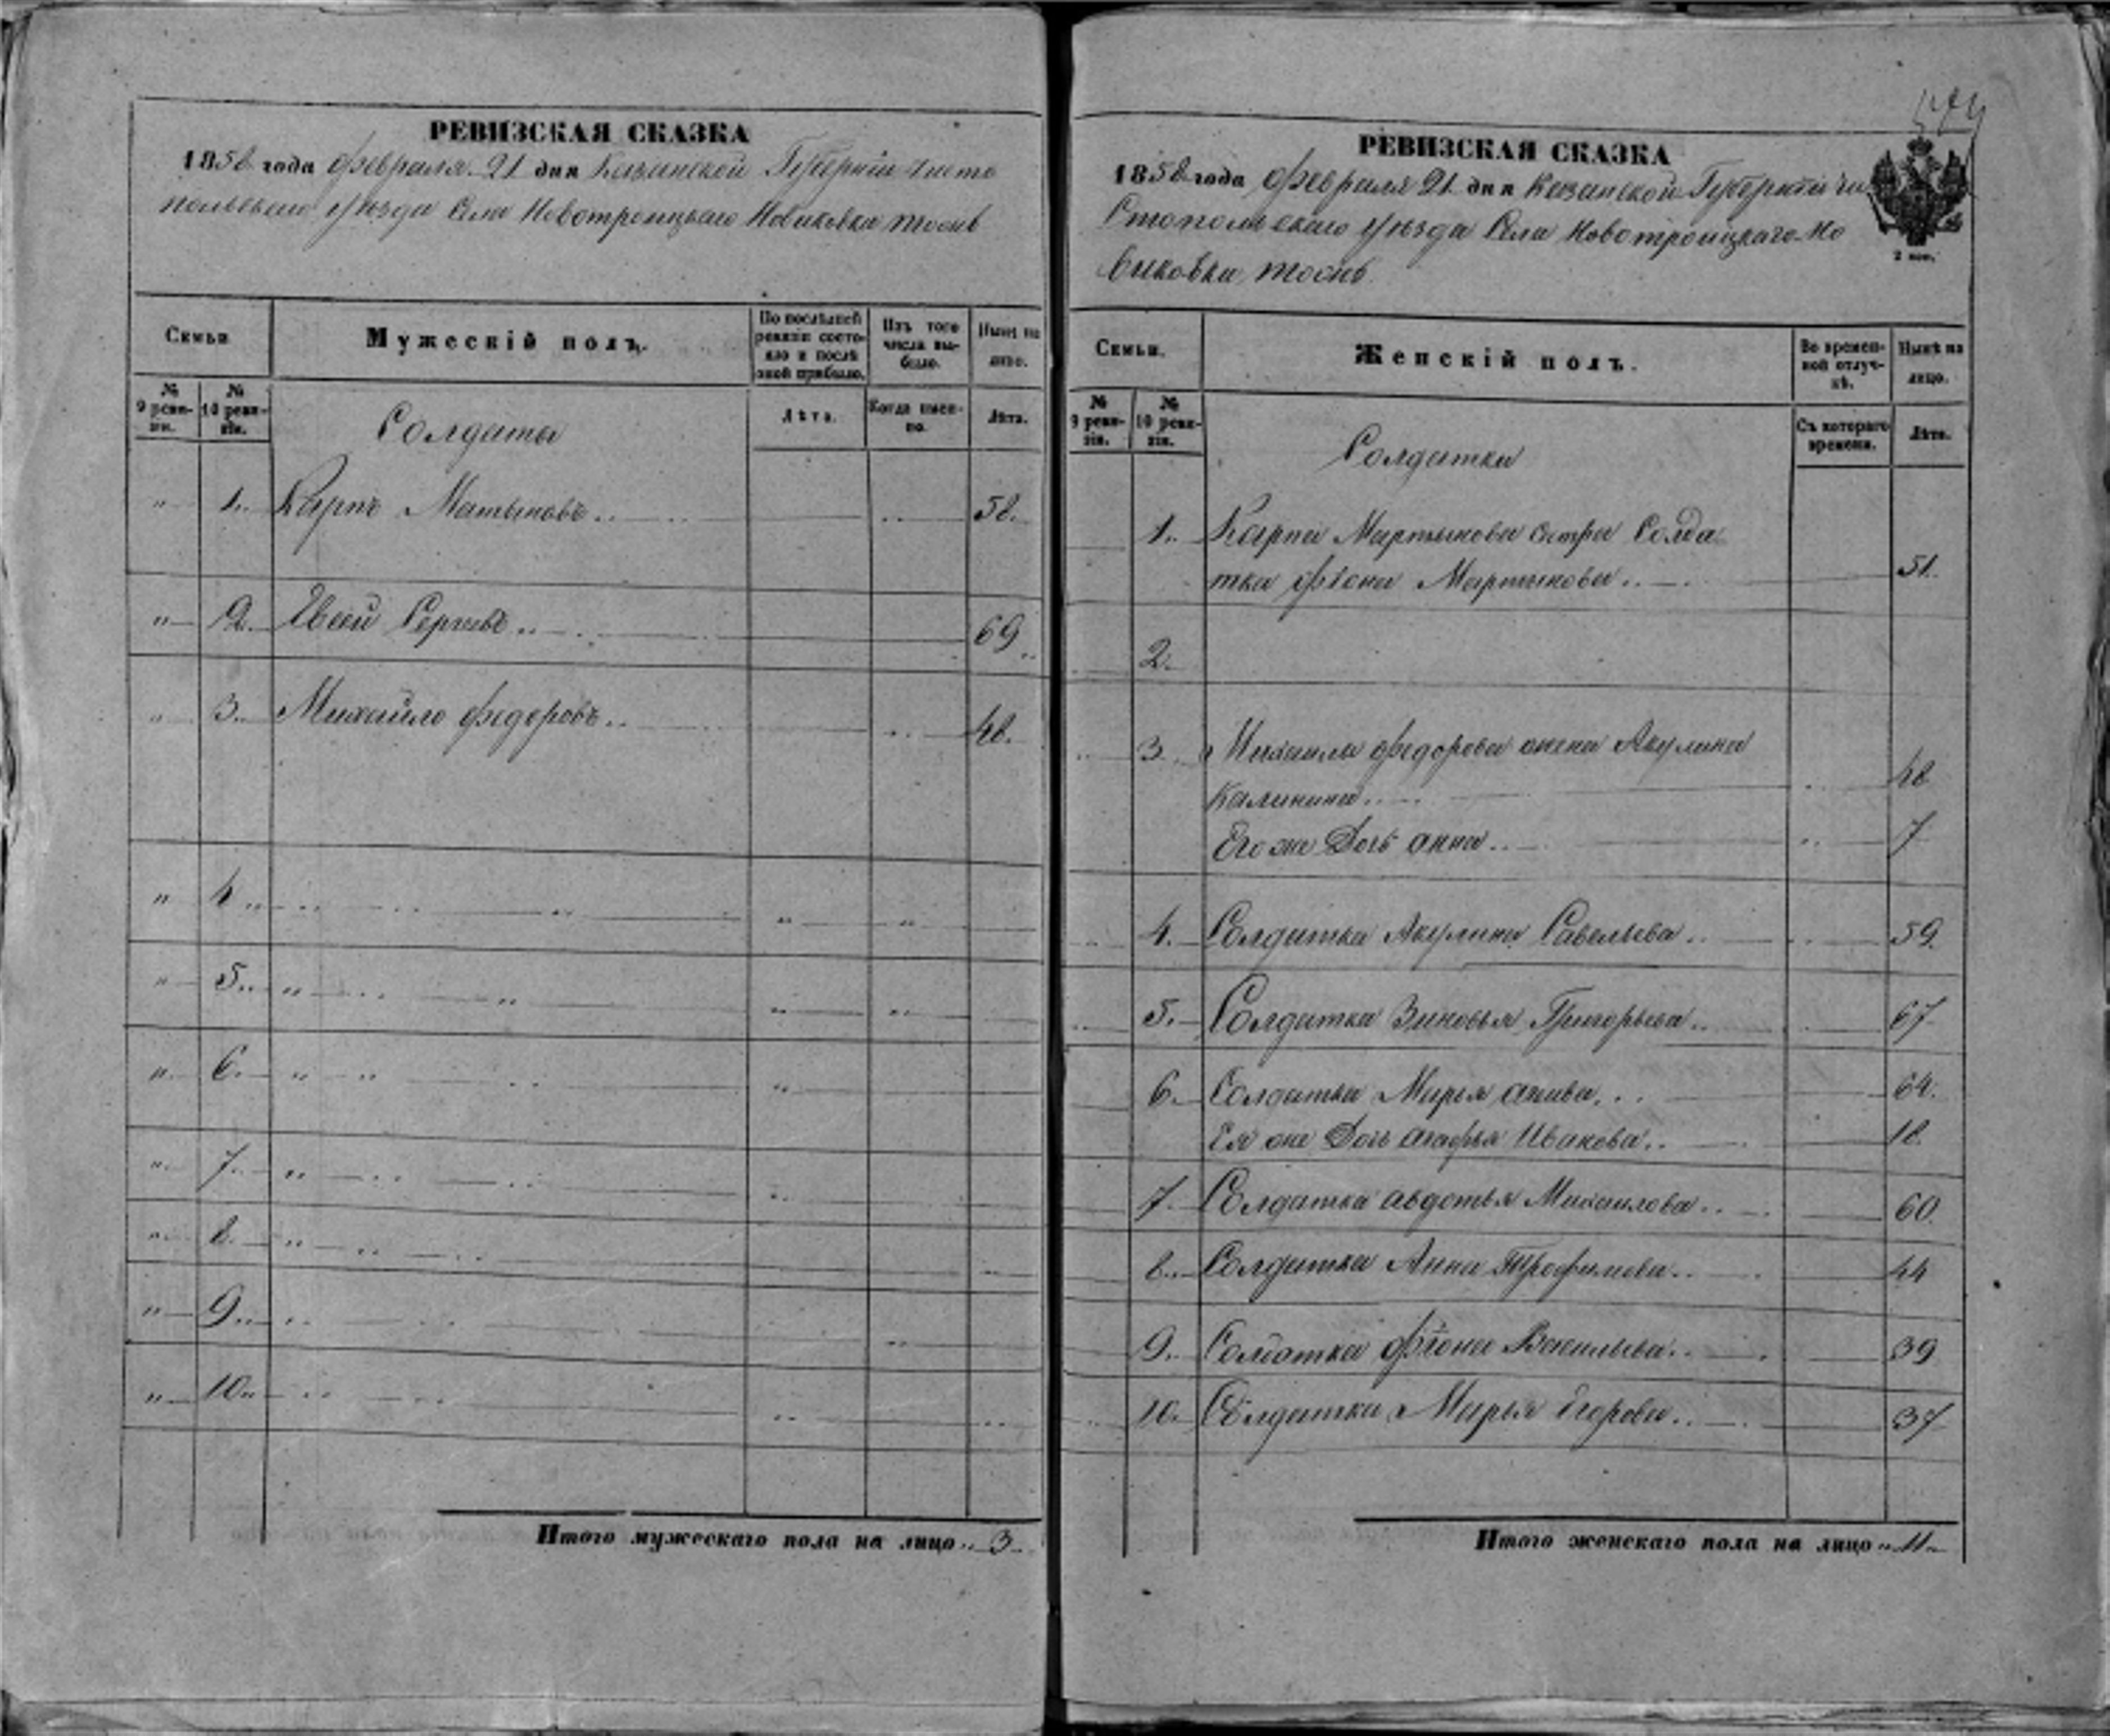 РЕВИЗСКАЯ СКАЗКА
1858 года Февраля 21 дня Казанской Губерніи Чисто
польскаго Уѣзда Села Новотроицкаго Новиковка тожъ
Семьи
Мужескій полъ.
По послѣдней ревизіи состояло и послѣ оной прибыло.
Изъ того числа выбыло.
Нынѣ на лицо.
№ 9 ревизіи.
№ 10 ревизіи.
Лѣта.
Когда именно.
Лѣта.
Солдаты
" 1. Карпъ Матыновъ 58.
" 2. Евсей Сергѣевъ 69
" 3. Михайло Федоровъ 48.
" 4
" 5
" 6
" 7
" 8
" 9
" 10
Итого мужескаго пола на лицо 3
РЕВИЗСКАЯ СКАЗКА
1858 года Февраля 21 дня Казанской Губерніи Чи
стопольскаго Уѣзда Села Новотроицкаго Но
виковка тожъ
2 коп.
Семьи.
Женскій полъ.
Во временной отлучкѣ.
Нынѣ на лицо.
№ 9 ревизіи.
№ 10 ревизіи.
Съ котораго времени.
Лѣта.
Солдатки
1. Карпа Мартынова сестра Солда
тка Фіона Мартынова 51.
2.
3. Михаила Федорова жена Акулина
Калинина 48
Его же Дочь Анна 7
4. Солдатка Акулина Савельева 59.
5. Солдатка Зиновья Григорьева 67
6. Солдатка Марья 64.
Ея же Дочь Агафья Иванова 18.
7. Солдатка Авдотья Михаилова 60.
8. Солдатка Анна Трофимова 44
9. Солдатка Фіона Васильева 39
10. Солдатка Марья Егорова 37
Итого женскаго пола на лицо 11